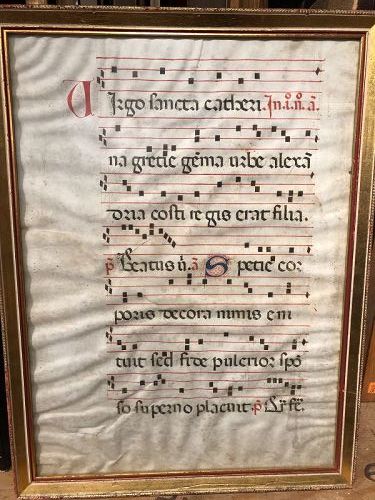 Virgo sancta catheri. In .i. nº. a.
na gretie gēma urbe alexā
dria costi re gis erat filia.
p̃ Beatus ñ. ā Spetie cor
poris decora nimis em
tuit sed fide pulcrior spō
so superno placuit. p̃